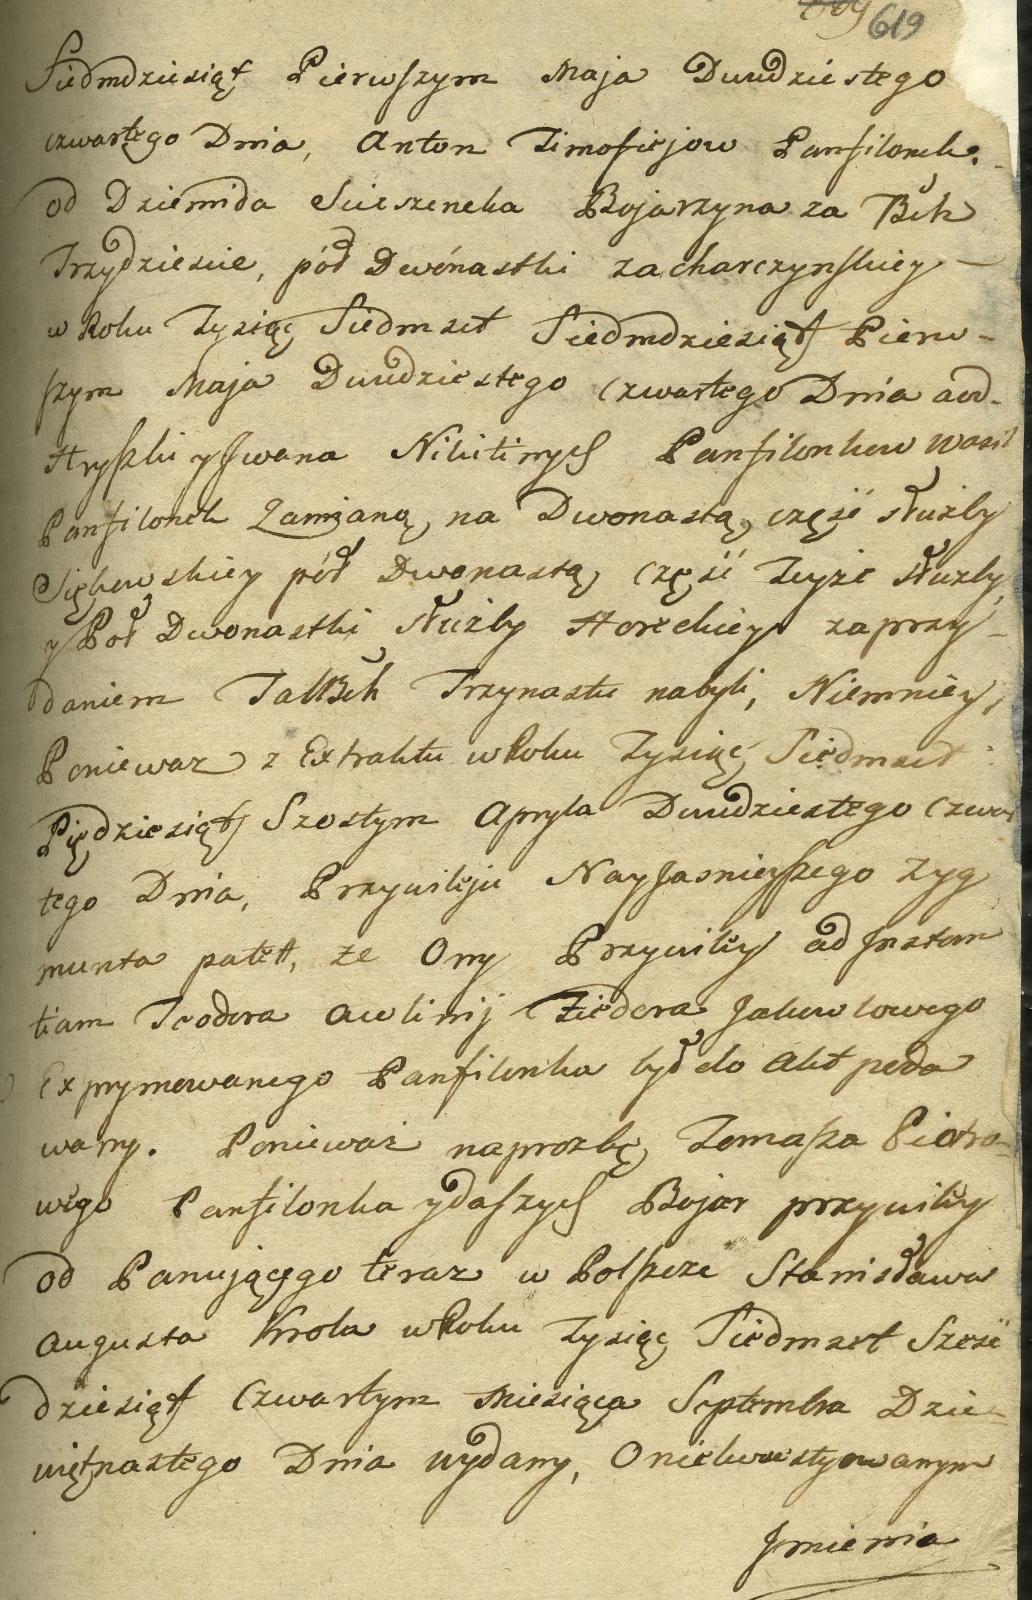 619
Siedmdziesiąt Pierwszym Maja Dwudziestego
czwartego Dnia, Anton Timofiejow Panfilonek.
od Dziemida Scieszenka Bojarzyna za Bzł
Trzydziescie, pół Dwónastki zacharczynskiey
w Roku Tysiąc Siedmset Siedmdziesiąt Pierw-
szym Maja Dwudziestego Czwartego Dnia aod-
Hryszki y Jwana Nikitinych Panfilonkow Wasil
Panfilonek Zamianą, na Dwonastą, część służby
pół Dwonastą, Część Teyże służby,
y Poł Dwonastki Służby Horeckiey zaprzy-
daniem Tal Trzynastu nabyli, Niemniey,
Poniewaz z Extraktu w Roku Tysiąc Siedmset
Pięćdziesiąt Szostym Apryla Dwudziestego Czwar
tego Dnia, Przywileju Nayjasnieyszego Zyg
munta patet, że Ony Przywiley ad Jnstan
tiam Teodora Awlinij Fiedora Jakowlowego
Exprymowanego Panfilonka był do Akt poda
wany. Ponieważ naprozbę Tomasza Piotro-
wego Panfilonka y daszych Bojar przywiley
od Panującego teraz w Polszcze Stanisława
Augusta Krola w Roku Tysiąc Siedmset Szesć
dziesiąt Czwartym Miesiąca Septembra Dzie-
więtnastego Dnia wydany, O niekwestyowanym
Jmienia